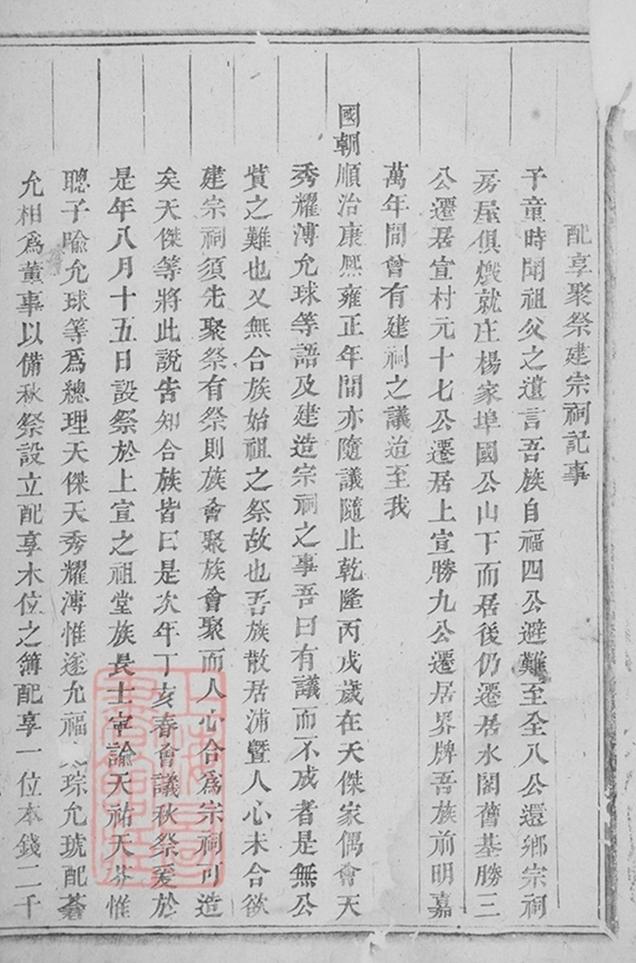 配享聚祭建宗祠記事
予童時聞祖父之遺言吾族自福四公避難至全八公還鄉宗祠
房屋俱燬就庄楊家埠國公山下而居後仍遷居水閣舊基勝三
公遷居宣村元十七公遷居上宣勝九公遷居界牌吾族前明嘉
萬年間曾有建祠之議迨至我
國朝順治康熙雍正年間亦隨議隨止乾隆丙戌歲在天傑家偶會天
秀耀溥允球等語及建造宗祠之事吾曰有議而不成者是無公
貲之難也又無合族始祖之祭故也吾族散居浦暨人心未合欲
建宗祠須先聚祭有祭則族會聚族會聚而人心合爲宗祠可造
矣天傑等將此說告知合族皆曰是次年丁亥春會議秋祭爰於
是年八月十五日設祭於上宣之祖堂族長士寧諭天祐天芬惟
聰子喻允球等爲總理天傑天秀耀溥惟遂允福琮允琥配蒼
允相爲董事以備秋祭設立配享木位之簿配享一位本錢二千